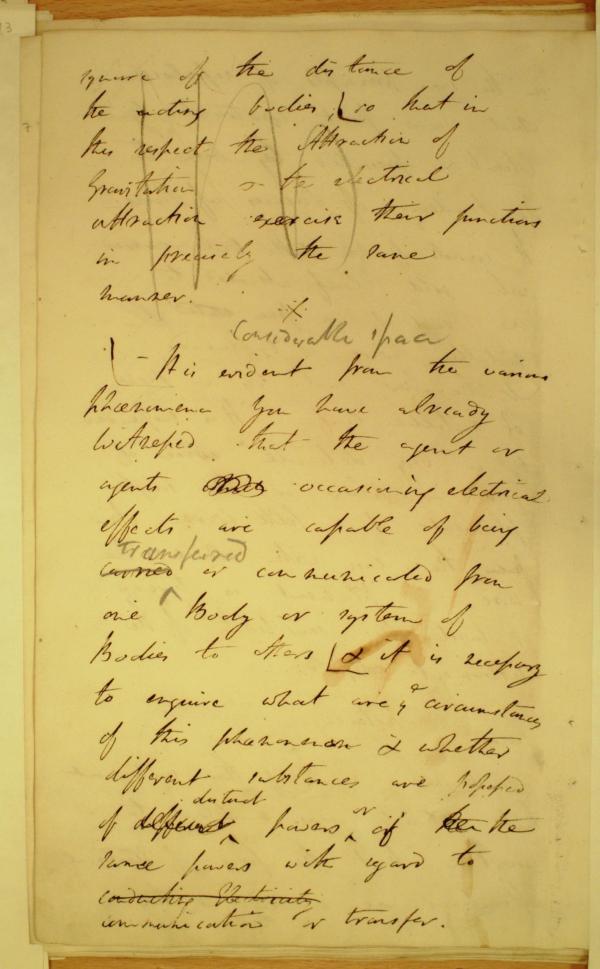 square of the distance of
the acting bodies, so that in
this respect the Attraction of
Gravitation & the electrical
attraction exercise their functions
in precisely the same
manner.
×
Considerable space
- It is evident from the various
phænomena you have already
witnessed that the agent or
agents occasioning electrical
effects are capable of being
transferred
carried or communicated from
one Body or system of
Bodies to others & it is necessary
to enquire what are ye circumstances
of this phænomenon & whether
different substances are possessed
distinct
of different powers or of the
same powers with regard to
conducting Electricity
communication or transfer.